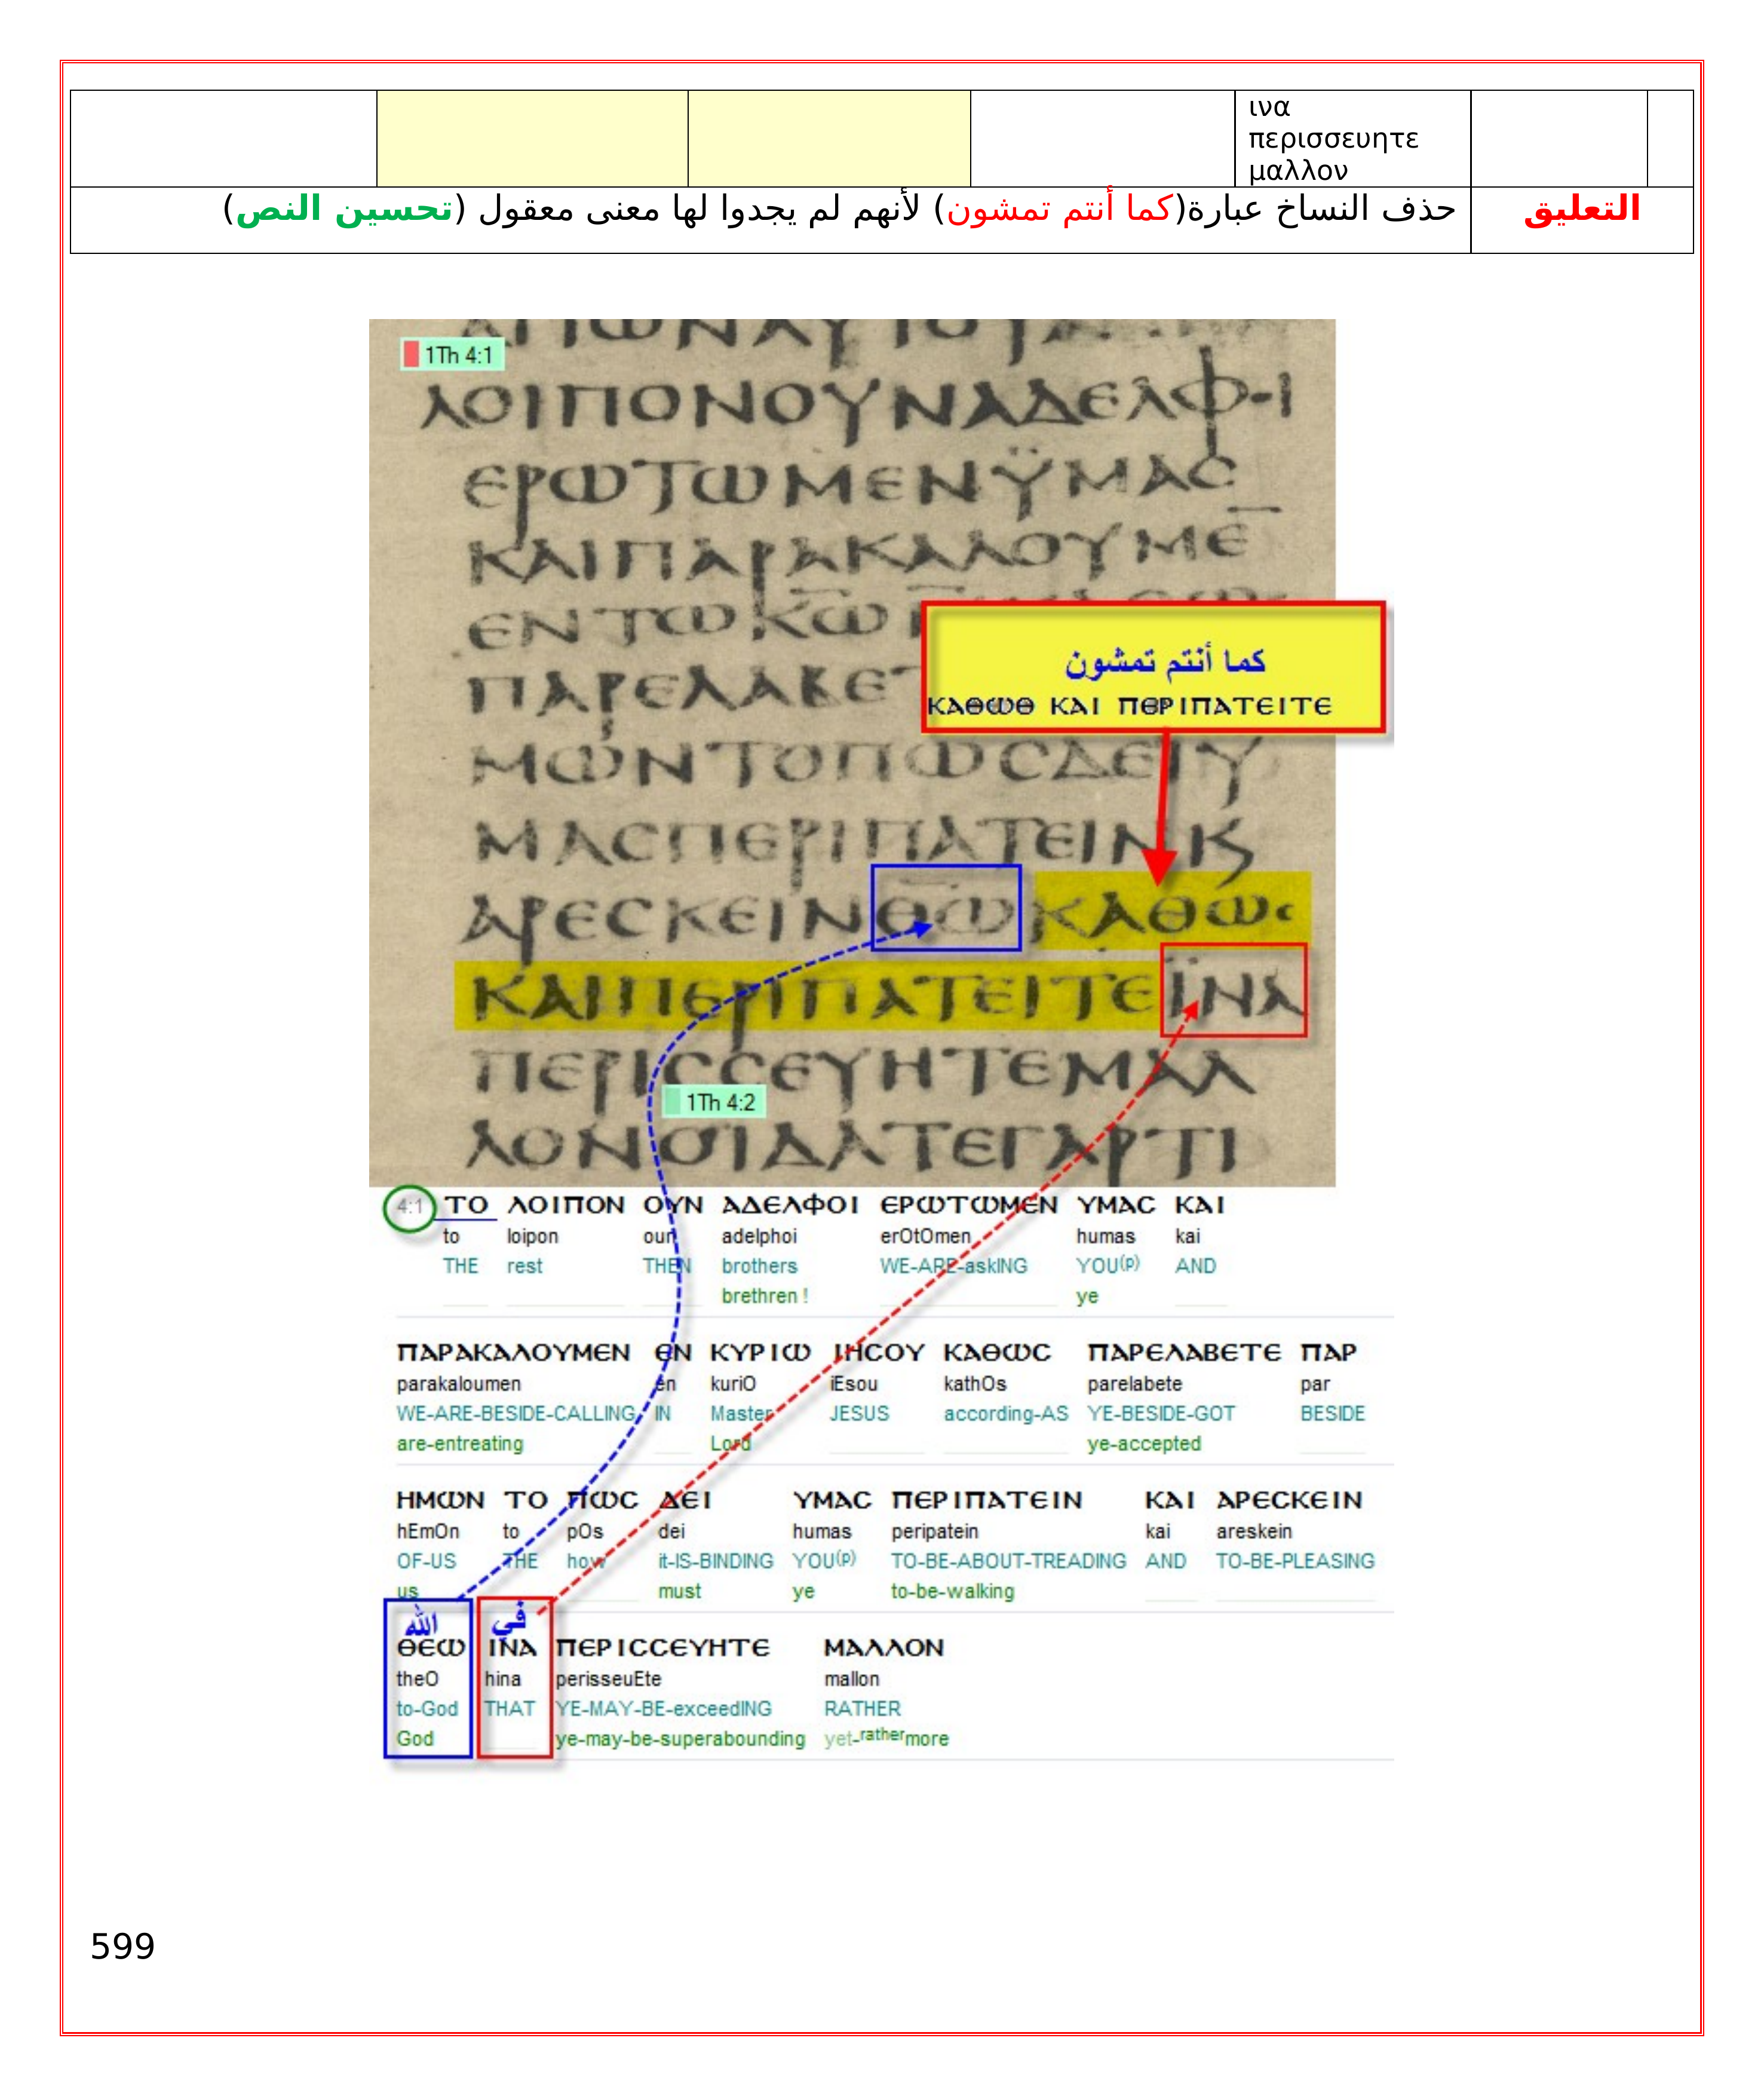 ινα
περισσευητε
μαλλον
التعليق
حذف النساخ عبارة(كما أنتم تمشون) لأنهم لم يجدوا لها معنى معقول (تحسين النص)
1Th 4:1
ⲗⲟⲓⲡⲟⲛⲟⲩⲛⲁⲇⲉⲗⲫⲟⲓ
ⲉⲣⲱⲧⲱⲙⲉⲛⲩ̈ⲙⲁⲥ
ⲕⲁⲓⲡⲁⲣⲁⲕⲁⲗⲟⲩⲙⲉ̅
ⲉⲛⲧⲱⲕ̅ⲱ̅
ⲡⲁⲣⲉⲗⲁⲃⲉⲧ
كما أنتم تمشون
ΚΑΘΩΘ ΚΑΙ ΠΘΡΙΠΑΤΕΙΤΕ
ⲙⲱⲛⲧⲟⲡⲱⲥⲇⲉⲓⲩ
ⲙⲁⲥⲡⲉⲣⲓⲡⲁⲧⲉⲓⲛⲕ
ⲁⲣⲉⲥⲕⲉⲓⲛⲑ̅ⲱ̅ⲕⲁⲑⲱⲥ
ⲕⲁⲓⲡⲉⲣⲓⲡⲁⲧⲉⲓⲧⲉⲓ̈ⲛⲁ
ⲡⲉⲣⲓⲥⲥⲉⲩⲏⲧⲉⲙⲁⲗ
1Th 4:2
ⲗⲟⲛⲟⲓⲇⲁⲧⲉⲅⲁⲣⲧⲓ
4:1 ΤΟ ΛΟΙΠΟΝ ΟΥΝ ΑΔΕΛΦΟΙ ΕΡΩΤΩΜΕΝ ΥΜΑC ΚΑΙ
to loipon oun adelphoi erOtOmen humas kai
THE rest THEN brothers WE-ARE-askING YOU(p) AND
brethren ! ye
ΠΑΡΑΚΑΛΟΥΜΕΝ ΕΝ ΚΥΡΙΩ ΙΗCΟΥ ΚΑΘΩC ΠΑΡΕΛΑΒΕΤΕ ΠΑΡ
parakaloumen en kuriO iEsou kathOs parelabete par
WE-ARE-BESIDE-CALLING IN Master JESUS according-AS YE-BESIDE-GOT BESIDE
are-entreating Lord ye-accepted
ΗΜΩΝ ΤΟ ΠΩC ΔΕΙ ΥΜΑC ΠΕΡΙΠΑΤΕΙΝ ΚΑΙ ΑΡΕCΚΕΙΝ
hEmOn to pOs dei humas peripatein kai areskein
OF-US THE how it-IS-BINDING YOU(p) TO-BE-ABOUT-TREADING AND TO-BE-PLEASING
us must ye to-be-walking
الله في
ΘΕΩ ΙΝΑ ΠΕΡΙCCΕΥΗΤΕ ΜΑΛΛΟΝ
theO hina perisseuEte mallon
to-God THAT YE-MAY-BE-exceedING RATHER
God ye-may-be-superabounding yet-rathermore
599